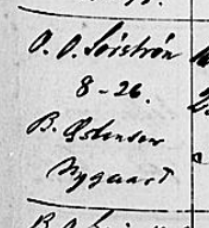 O. O. Sörströn
8-26.
B. Østensen
Nygaard
B. O.